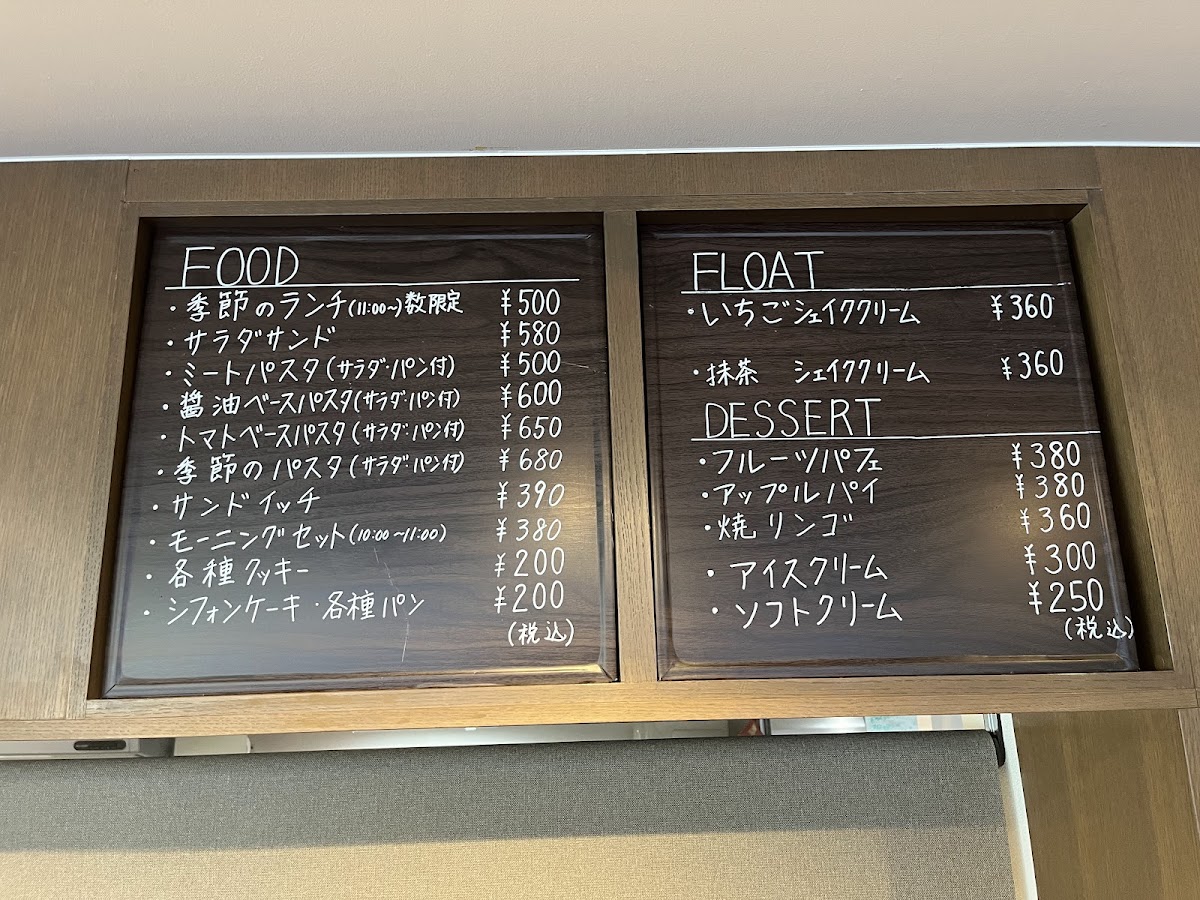 FOOD
・季節のランチ(11:00~)数限定 ¥500
・サラダサンド ¥580
・ミートパスタ(サラダ・パン付) ¥500
・醤油ベースパスタ(サラダ・パン付) ¥600
・トマトベースパスタ(サラダ・パン付) ¥650
・季節のパスタ(サラダ・パン付) ¥680
・サンドイッチ ¥390
・モーニングセット(10:00~11:00) ¥380
・各種クッキー ¥200
・シフォンケーキ・各種パン ¥200
(税込)
FLOAT
・いちごシェイククリーム ¥360
・抹茶 シェイククリーム ¥360
DESSERT
・フルーツパフェ ¥380
・アップルパイ ¥380
・焼リンゴ ¥360
・アイスクリーム ¥300
・ソフトクリーム ¥250
(税込)